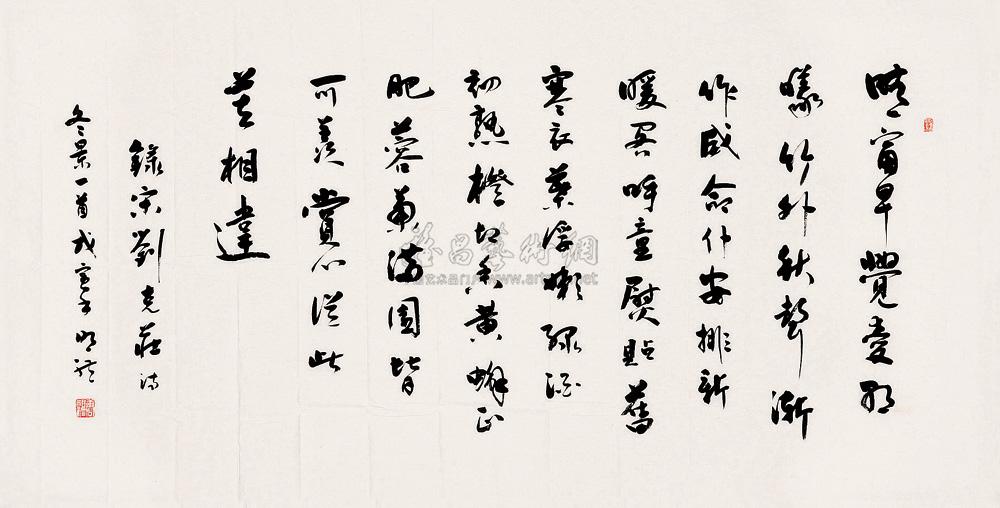 晴窗早覺愛朝
曦竹外秋聲漸
作威命仆安排新
暖閣呼童熨貼舊
寒衣葉浮嫩綠酒
初熟橙切香黃蟹正
肥蓉菊滿園皆
可羨賞心從此
莫相違
錄宋劉克莊詩
冬景一首戊寅明